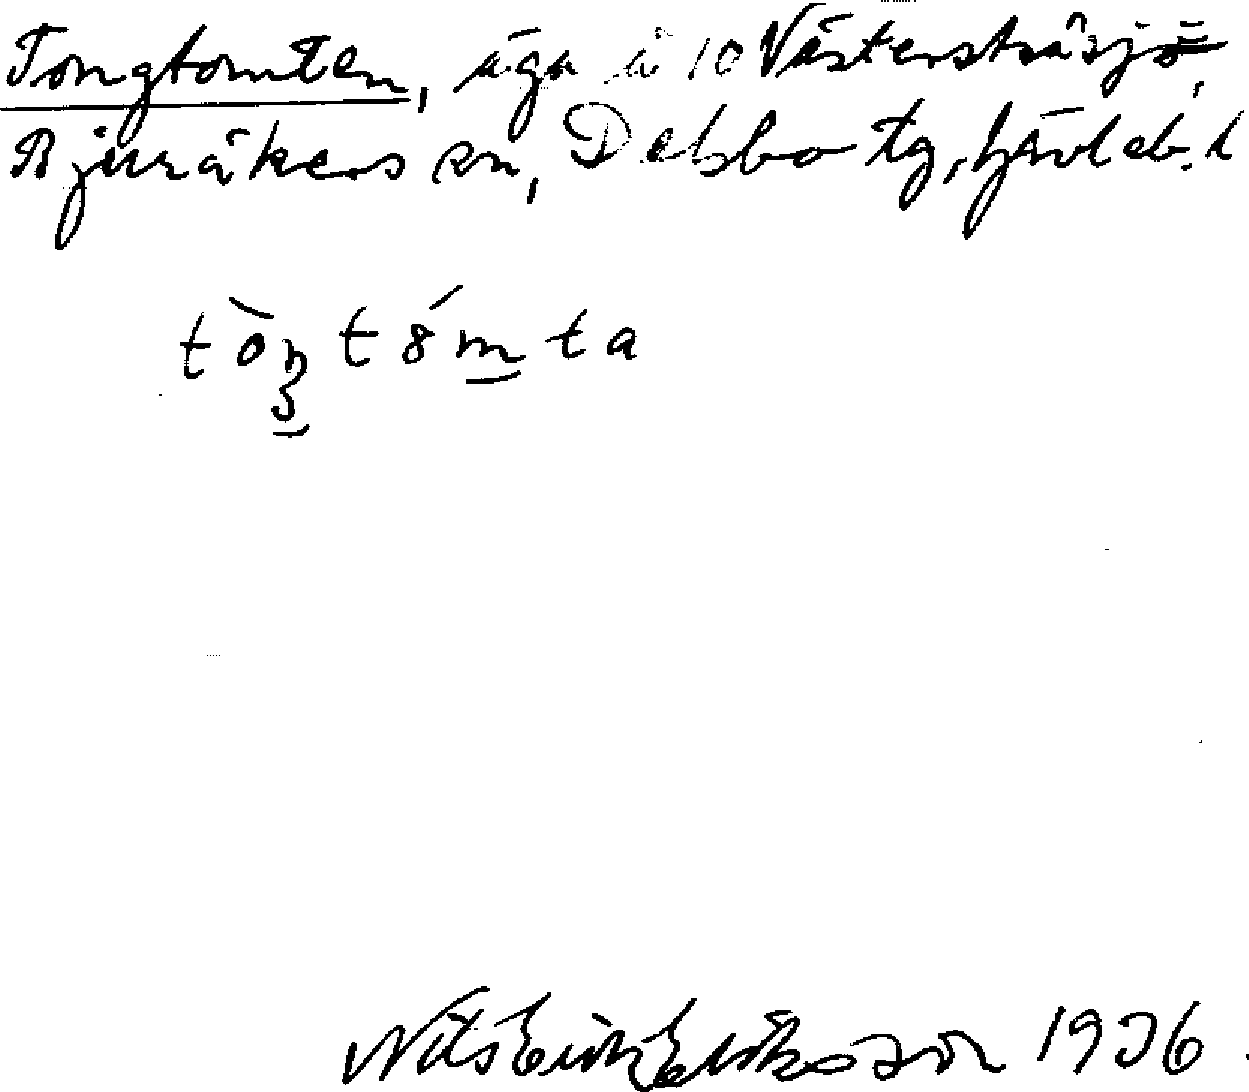 Tongtomten, äga å 10 Västerstråsjö,
Bjuråkers sn, Delsbo tg, Gävleb. l
tòŋtómta
Nils Erik Eriksson 1936